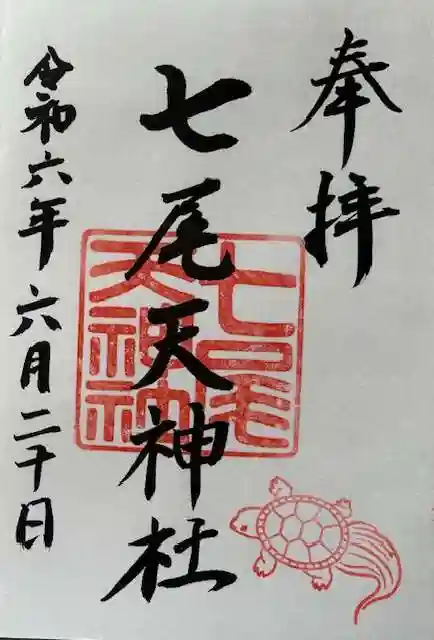 奉拝
七尾天神社
七尾天神社
令和六年六月二十日